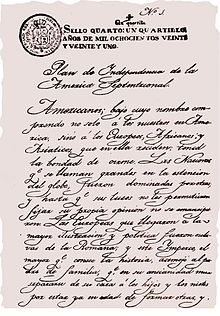 Nº 1
Un quartillo
SELLO QUARTO: UN QUARTILLO
AÑOS DE MIL OCHOCIENTOS VEINTE
Y VEINTE Y UNO.
Plan de Independencia de la
America Septentrional.
Americanos; bajo cuyo nombre com-
prendo no solo á los nacidos en Ame-
rica, sino á los Europeos, Africanos, y
Asiaticos, que en ella residen: tened
la bondad de oirme. Las Naciones
que se llaman grandes en la estencion
del globo, fueron dominadas por otras
y hasta que sus luces no les permitieron
fijar su propia opinion no se emancipa-
ron. Las Europeas que llegaron á la
mayor ilustracion y politica fueron escla-
vas de la Romana; y este Imperio el
mayor que conoce la historia, asemejó al pa-
dre de familia, que en su ancianidad mira
separarse de su casa á los hijos y los nietos
por estar ya en edad de formar otras y